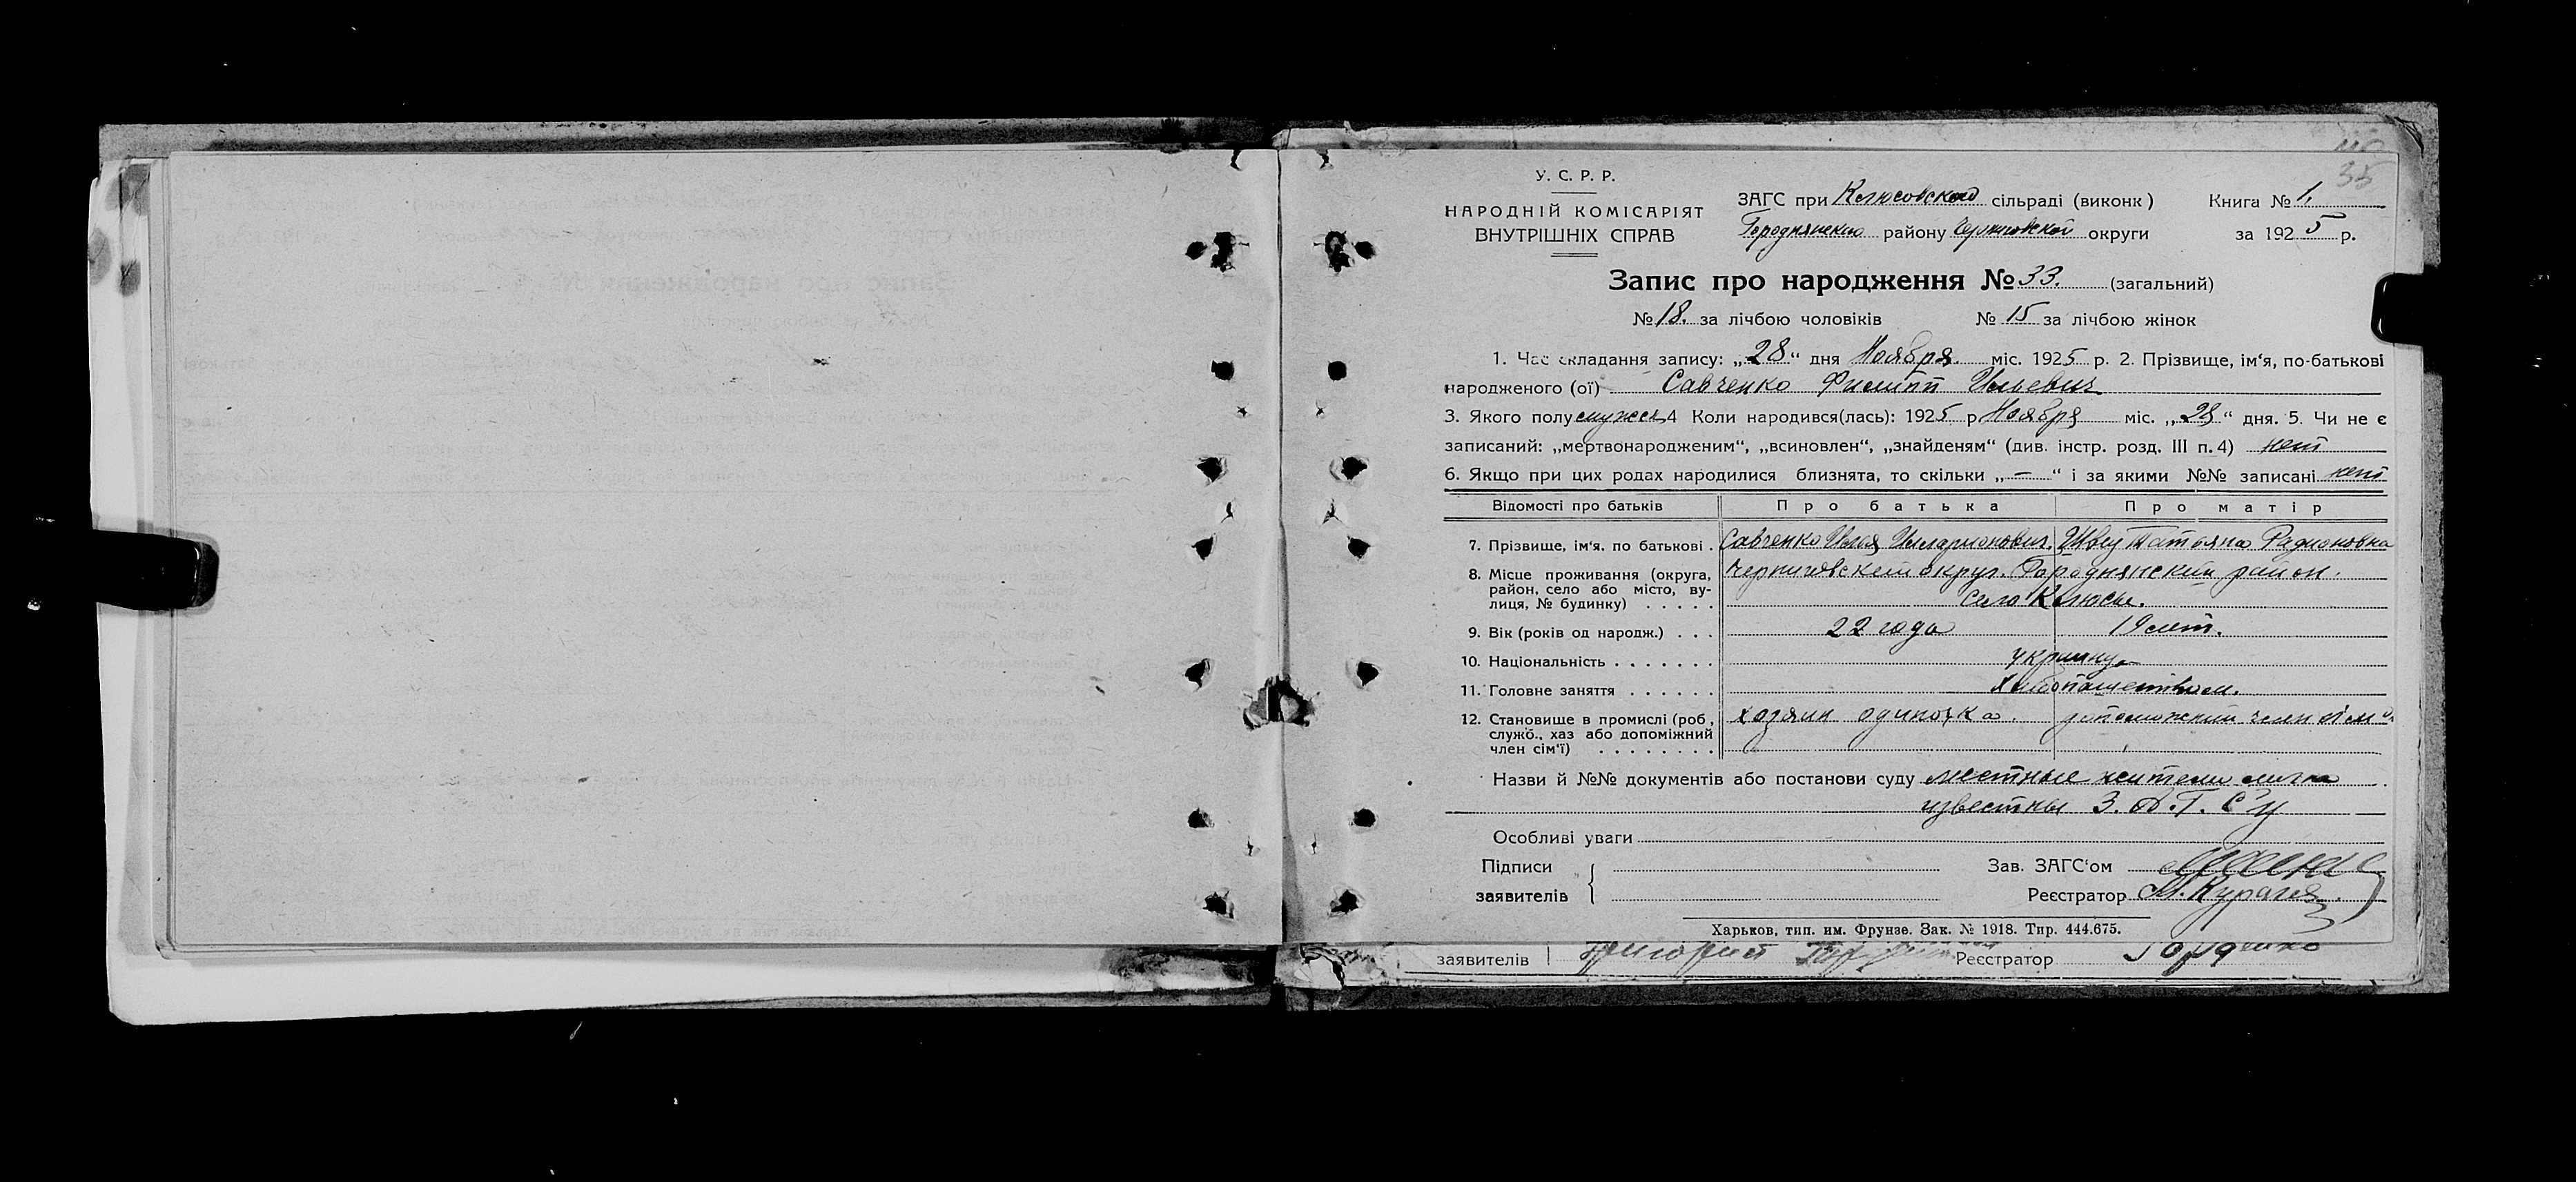 35
У. С. Р. Р.
НАРОДНІЙ КОМІСАРІЯТ
ВНУТРІШНІХ СПРАВ
ЗАГС при Клюсовской сільраді (виконк)
Книга № 1.
Городнянского району Черниговской округи
за 1925 р.
Запис про народження № 33. (загальний)
№ 18. за лічбою чоловіків № 15 за лічбою жінок
1. Час складання запису: „28“ дня Ноября міс. 1925 р. 2. Прізвище, ім‘я, по-батькові
народженого (ої) Савченко Филипп Ильевич
3. Якого полу мужск 4 Коли народився(лась): 1925 р Ноября міс. „28“ дня. 5. Чи не є
записаний: „мертвонародженим“, „всиновлен“, „знайденям“ (див. інстр. розд. III п. 4) нет
6. Якщо при цих родах народилися близнята, то скільки „—“ і за якими №№ записані нет
Відомості про батьків Про батька Про матір
7. Прізвище, ім‘я. по батькові . Савченко Илья Илларионович. Швец Татьяна Радионовна
8. Місце проживання (округа, район, село або місто, вулиця, № будинку) . . . . . Черниговский округ. Городнянский район.
Село Клюсы.
9. Вік (років од народж.) . . . 22 года 19 лет.
10. Національність . . . . . . . украинцы
11. Головне заняття . . . . . . Хлебопашеством.
12. Становище в промислі (роб, служб., хаз або допоміжний член сім‘ї) . . . . . . . . хозяин одиночка. допоможний член
Назви й №№ документів або постанови суду местные жители лично
известны З. А. Г. С'у
Особливі уваги
Підписи
заявителів
Зав. ЗАГС‘ом
Реєстратор М. Купагея
Харьков, тип. им. Фрунзе. Зак. № 1918. Тир. 444.675.
заявителів Реєстратор